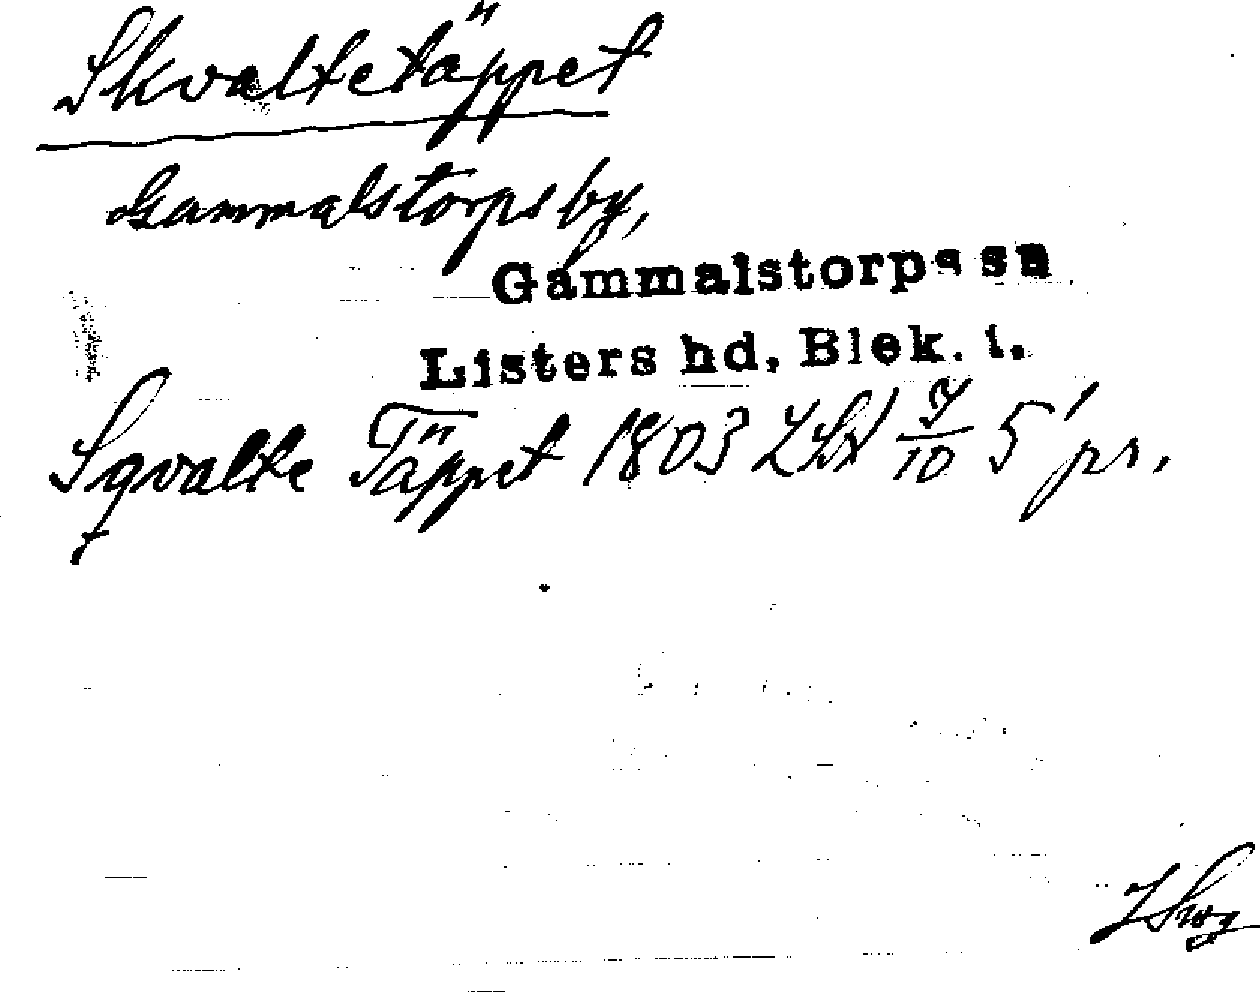 Skvaltetäppet
Gammalstorps by,
Gammalstorps sn
Listers hd, Blek. l.
Sqvalte Täppet 1803 LSk 7/10 5' pr.